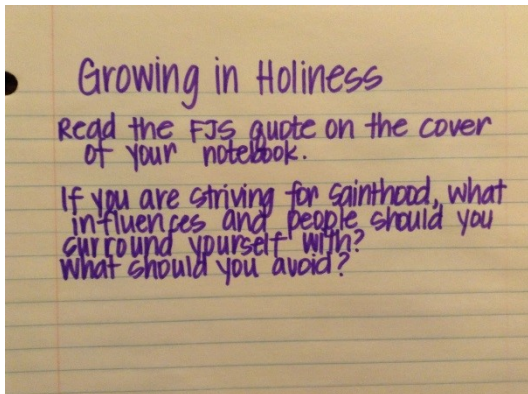 Growing in Holiness
Read the FJS quote on the cover
of your notebook.
If you are striving for sainthood, what
influences and people should you
surround yourself with?
What should you avoid?